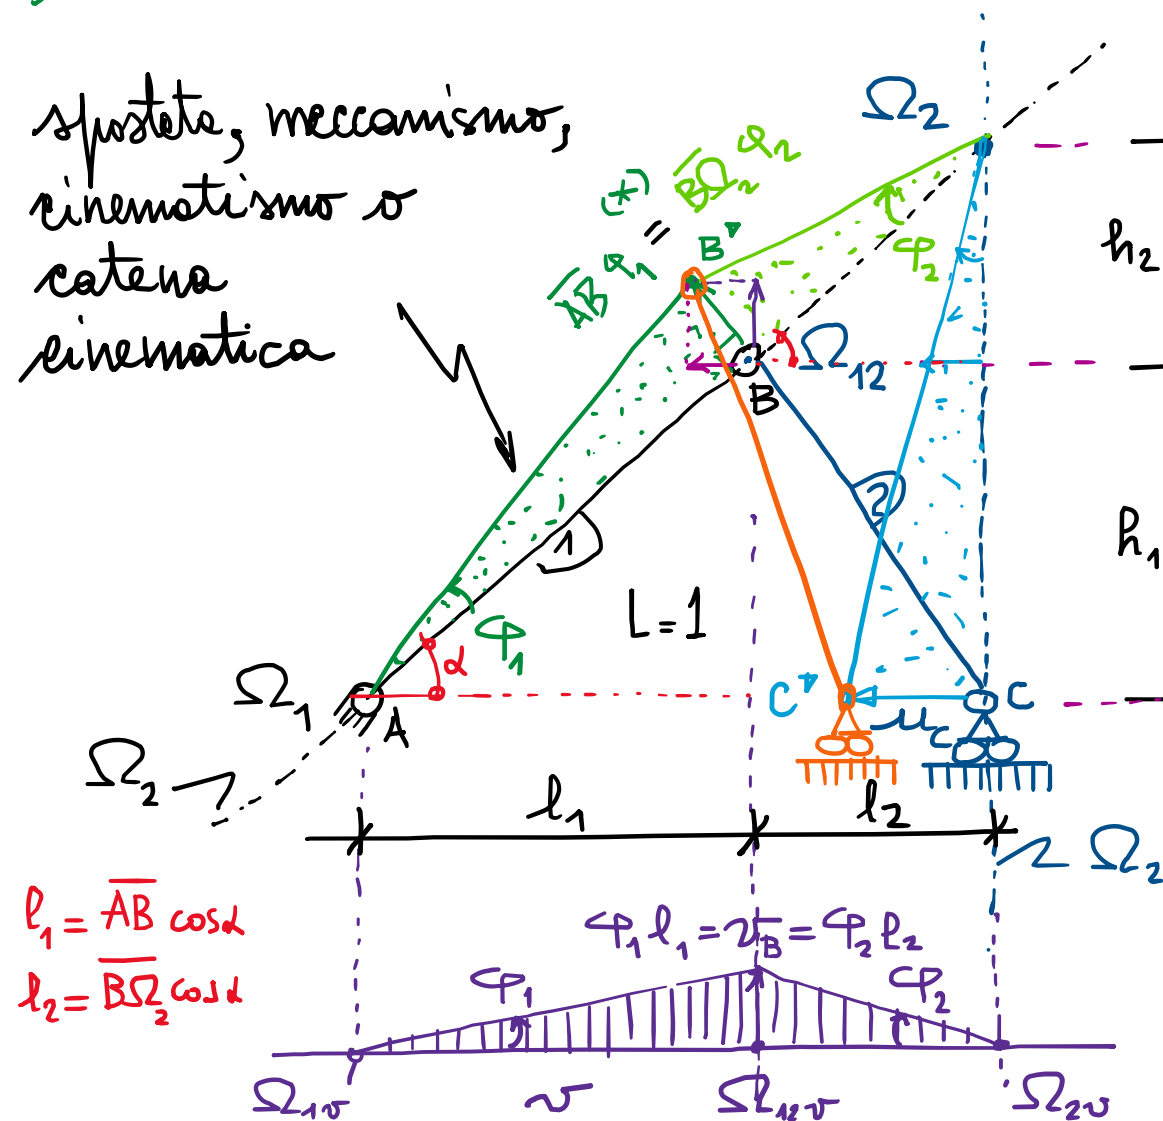 spostata, meccanismo,
cinematismo o
catena
cinematica
Ω₂
(*)
A̅B̅ φ₁ = B̅Ω̅₂ φ₂
B'
φ₂
h₂
Ω₁₂
B
2
1
h₁
L=1
φ₁
α
Ω₁
A
C'
u_C
C
Ω₂
l₁
l₂
Ω₂
l₁ = A̅B̅ cosα
l₂ = B̅Ω̅₂ cosα
φ₁ l₁ = v_B = φ₂ l₂
φ₁
φ₂
Ω₁ᵥ
v
Ω₁₂ᵥ
Ω₂ᵥ